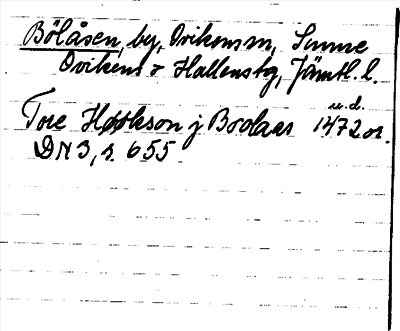 Bölåsen, by, Ovikens sn, Sunne
Ovikens o Hallens tg, Jämtl. l.
u.d.
Tore Høskson j Bodaas 1472 or.
DN 3, s. 655